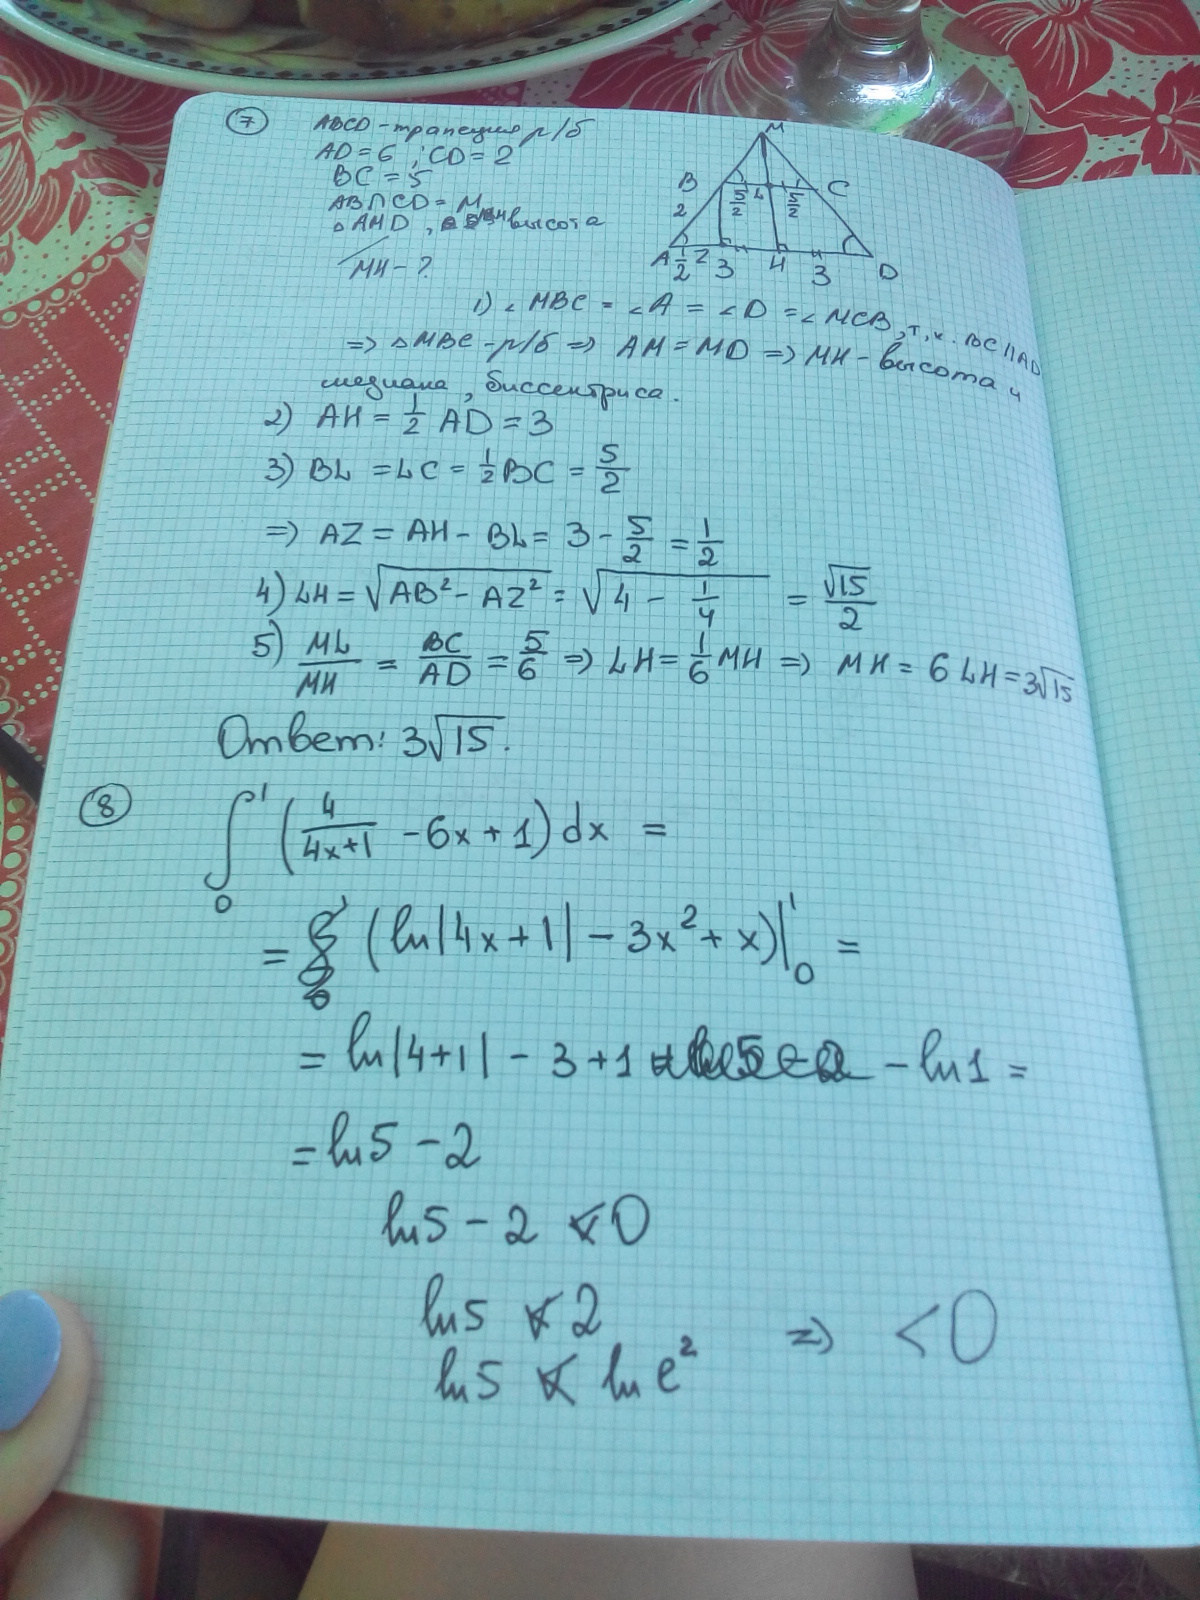 7 ABCD - трапеция р/б
AD = 6 ; CD = 2
BC = 5
AB∩CD = M
△AMD, MH высота
MH - ?
M
B C
5/2 L 5/2
2
A 1/2 Z 3 H 3 D
1) ∠MBC = ∠A = ∠D = ∠MCB, т.к. BC || AD
=> △MBC - р/б => AM = MD => MH - высота и
медиана, биссектриса.
2) AH = 1/2 AD = 3
3) BL = LC = 1/2 BC = 5/2
=> AZ = AH - BL = 3 - 5/2 = 1/2
4) LH = √(AB² - AZ²) = √(4 - 1/4) = √15/2
5) ML/MH = BC/AD = 5/6 => LH = 1/6 MH => MH = 6 LH = 3√15
Ответ: 3√15.
8 ∫₀¹ (4/(4x+1) - 6x + 1) dx =
= (ln|4x+1| - 3x² + x)|₀¹ =
= ln|4+1| - 3 + 1 - ln1 =
= ln5 - 2
ln5 - 2 < 0
ln5 < 2
ln5 < ln e² => < 0